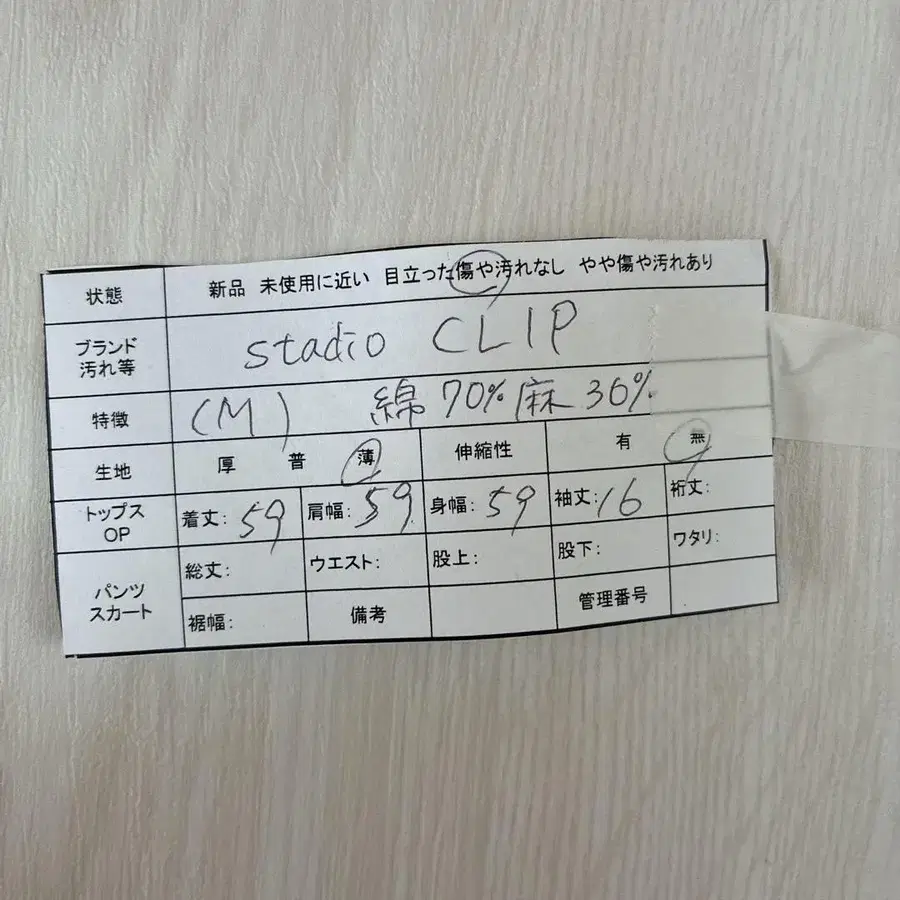 状態 新品 未使用に近い 目立った傷や汚れなし やや傷や汚れあり
ブランド
汚れ等
stadio CLIP
特徴 (M) 綿 70% 麻 30%
生地 厚 普 薄 伸縮性 有 無
トップス
OP
着丈: 59 肩幅: 59 身幅: 59 袖丈: 16 裄丈:
パンツ
スカート
総丈: ウエスト: 股上: 股下: ワタリ:
裾幅: 備考 管理番号